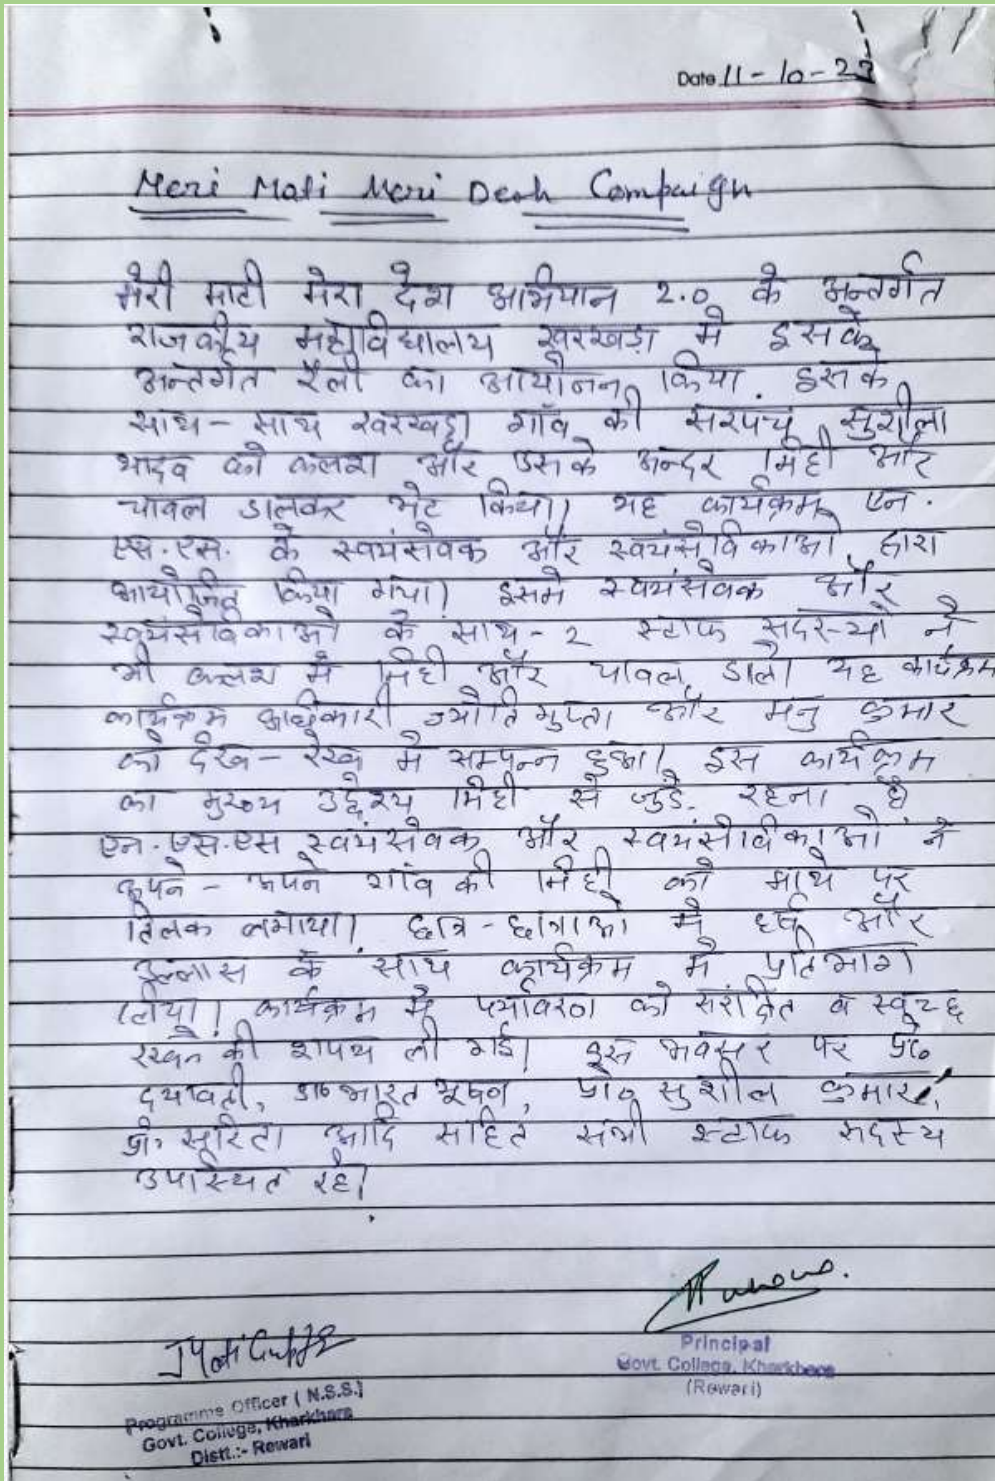 Date 11-10-23
Meri Mati Meri Desh Compaign
मेरी माटी मेरा देश अभियान 2.0 के अन्तर्गत
राजकीय महाविधालय खरखड़ा में इसके
अन्तर्गत रैली का आयोजन किया. इसके
साथ-साथ खरखड़ा गाँव की सरपंच सुशीला
यादव को कलश और उसके अन्दर मिट्टी और
चावल डालकर भेट किया। यह कार्यक्रम एन.
एस.एस. के स्वयंसेवक और स्वयंसेविकाओ द्वारा
आयोजित किया गया। इसमे स्वयंसेवक और
स्वयंसेविकाओ के साथ-2 स्टाफ सदस्यो ने
भी कलश मे मिट्टी और चावल डाले। यह कार्यक्रम
कार्यक्रम अधिकारी ज्योति गुप्ता और मंजु कुमार
की देख-रेख मे सम्पन्न हुआ। इस कार्यक्रम
का मुख्य उद्देश्य मिट्टी से जुडे. रहना है
एन.एस.एस स्वयंसेवक और स्वयंसेविकाओ ने
अपने-अपने गांव की मिट्टी को माथे पर
तिलक लगाया। छात्र-छात्राओ मे हर्ष और
उल्लास के साथ कार्यक्रम मे प्रतिभाग
लिया। कार्यक्रम मे पर्यावरण को संरक्षित व स्वच्छ
रखने की शपथ ली गई। इस अवसर पर प्रो०
दयावती, डा० भारत भूषण, प्रो० सुशील कुमार,
प्रो. सरिता आदि सहित सभी स्टाफ सदस्य
उपस्थित रहे।
Jyoti Gupta
Programme Officer ( N.S.S.)
Govt. College, Kharkhara
Distt.:- Rewari
Principal
Govt. College, Kharkhara
(Rewari)